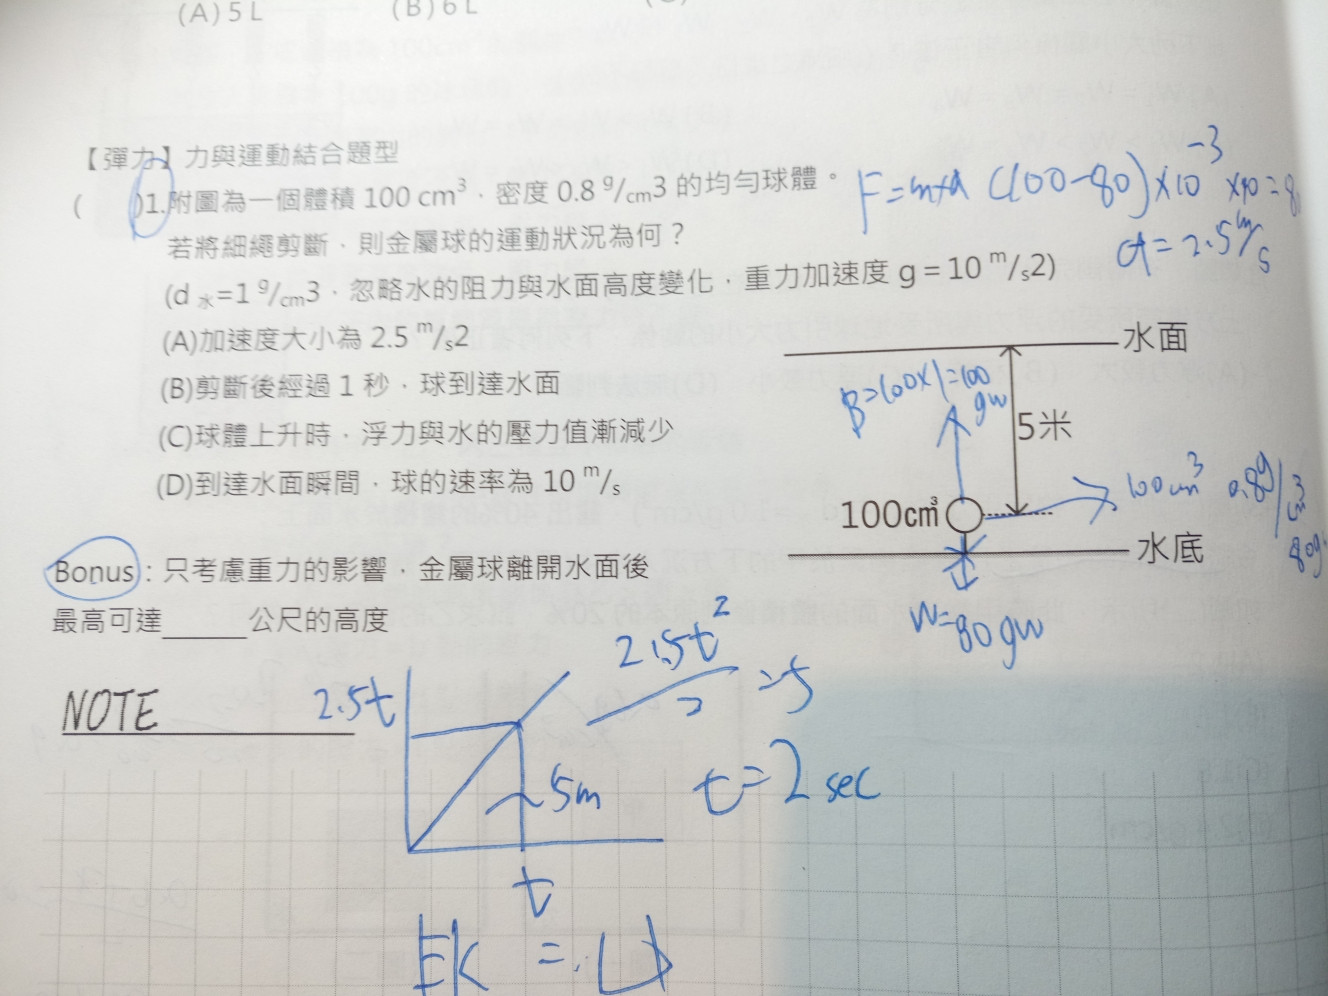 (A) 5 L (B) 6 L
【彈力】力與運動結合題型
( )1.附圖為一個體積 100 cm³，密度 0.8 g/cm3 的均勻球體。
若將細繩剪斷，則金屬球的運動狀況為何？
(d 水=1 g/cm3，忽略水的阻力與水面高度變化，重力加速度 g = 10 m/s2)
(A)加速度大小為 2.5 m/s2
(B)剪斷後經過 1 秒，球到達水面
(C)球體上升時，浮力與水的壓力值漸減少
(D)到達水面瞬間，球的速率為 10 m/s
F=m×a (100-80)×10⁻³×10=8
a=2.5m/s
水面
B=100×1=100
gw
5米
100cm³
100cm³ 0.8g/cm³
80g
水底
W=80gw
Bonus：只考慮重力的影響，金屬球離開水面後
最高可達______公尺的高度
NOTE
2.5t
2.5t²/2=5
5m
t=2 sec
t
EK = U